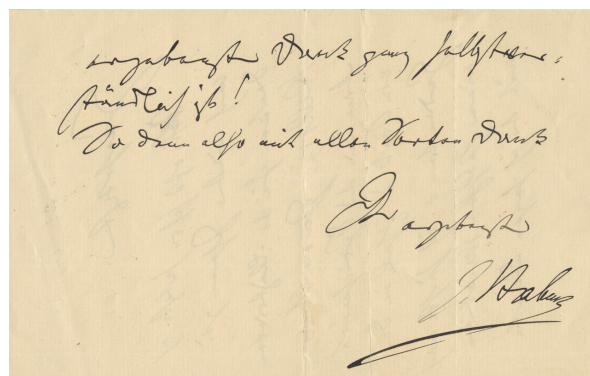 ergebenster Dank ganz selbstver-
ständlich ist!
So denn also mit allen Dank
Ihr ergebenster
J.